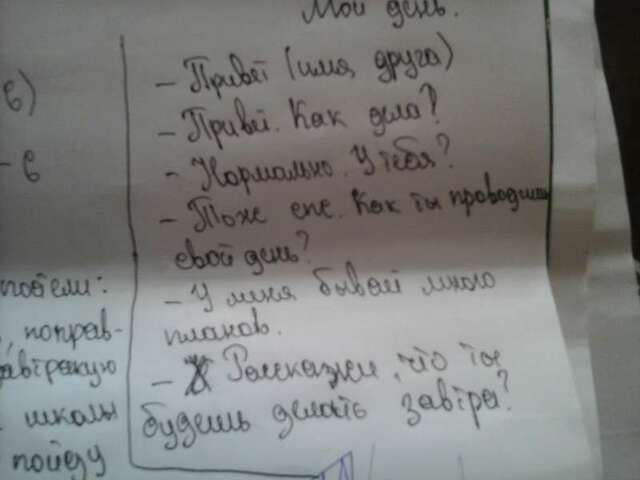 Мой день.
– Привет (имя друга)
– Привет. Как дела?
– Нормально. У тебя?
– Тоже
Как ты проводишь
свой день?
– У меня бывает много
планов.
– Расскажи, что ты
будешь делать завтра?
б)
– в
постели:
поправ-
автракую
школы
пойду